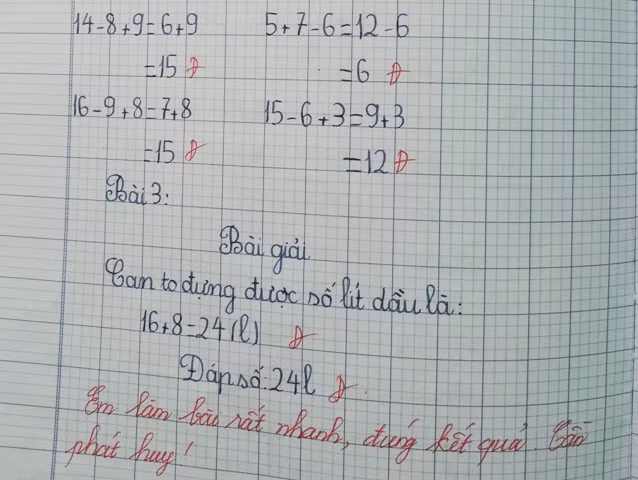 14-8+9=6+9 5+7-6=12-6
=15 Đ =6 Đ
16-9+8=7+8 15-6+3=9+3
=15 Đ =12 Đ
Bài 3:
Bài giải
Can to đựng được số lít dầu là:
16+8=24(l) Đ
Đáp số: 24l Đ
Em làm bài rất nhanh, đúng kết quả. Cần
phát huy!